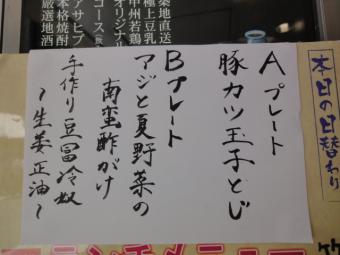 本日の日替わり
Aプレート
豚カツ玉子とじ
Bプレート
アジと夏野菜の
南蛮酢がけ
手作り豆冨冷奴
~生姜正油~
築地直送
極上豆乳
甲州若鶏
オリジナル
コース
アサヒビ
本格焼酎
厳選地酒
ランチメニュー